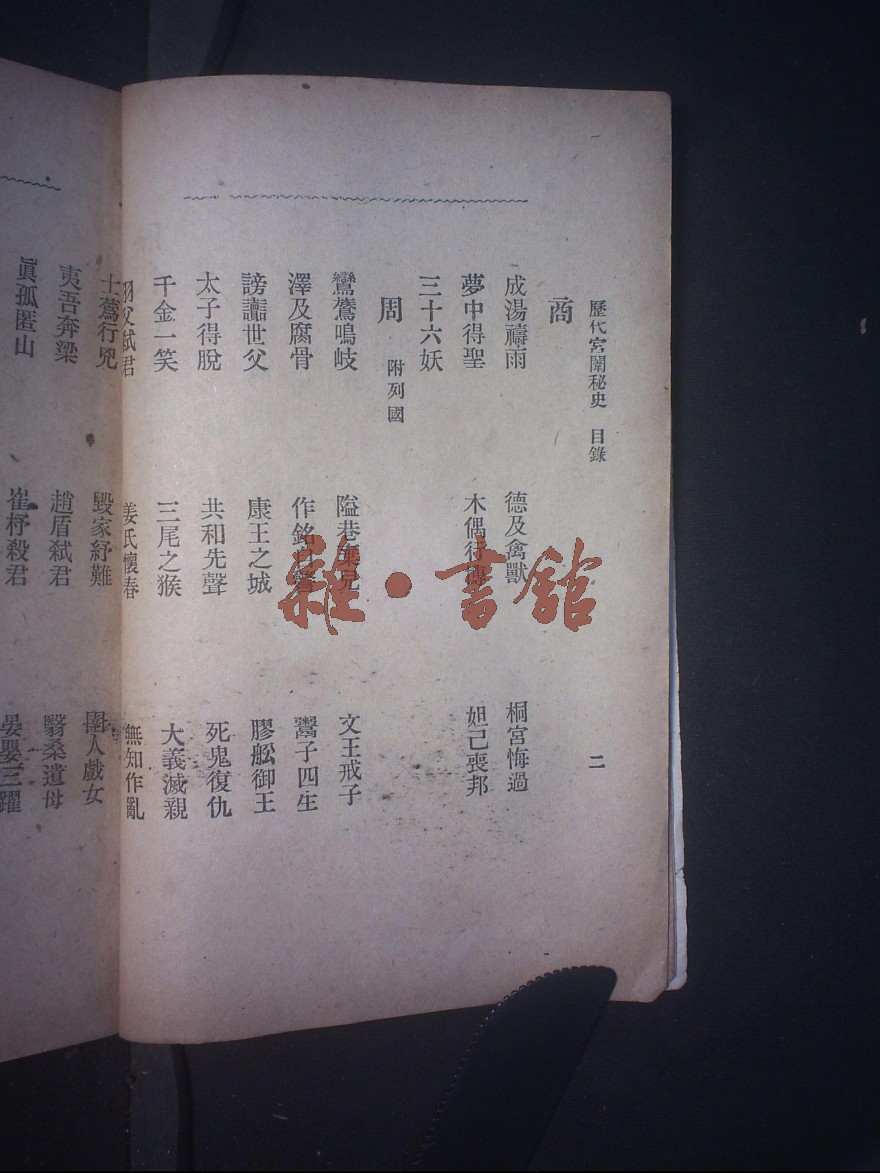 歷代宮闈秘史 目錄 二
商
成湯禱雨 德及禽獸 桐宮悔過
夢中得聖 木偶行博 妲己喪邦
三十六妖
周 附列國
鸞鷟鳴岐 隘巷棄兒 文王戒子
澤及腐骨 作銘自警 鬻子四生
謗讟世父 康王之城 膠舩御王
太子得脫 共和先聲 死鬼復仇
千金一笑 三尾之猴 大義滅親
羽父弒君 姜氏懷春 無知作亂
士蔿行兇 毀家紓難 圉人戲女
夷吾奔梁 趙盾弒君 翳桑遺母
眞孤匿山 崔杼殺君 晏嬰三躍
雜·書館